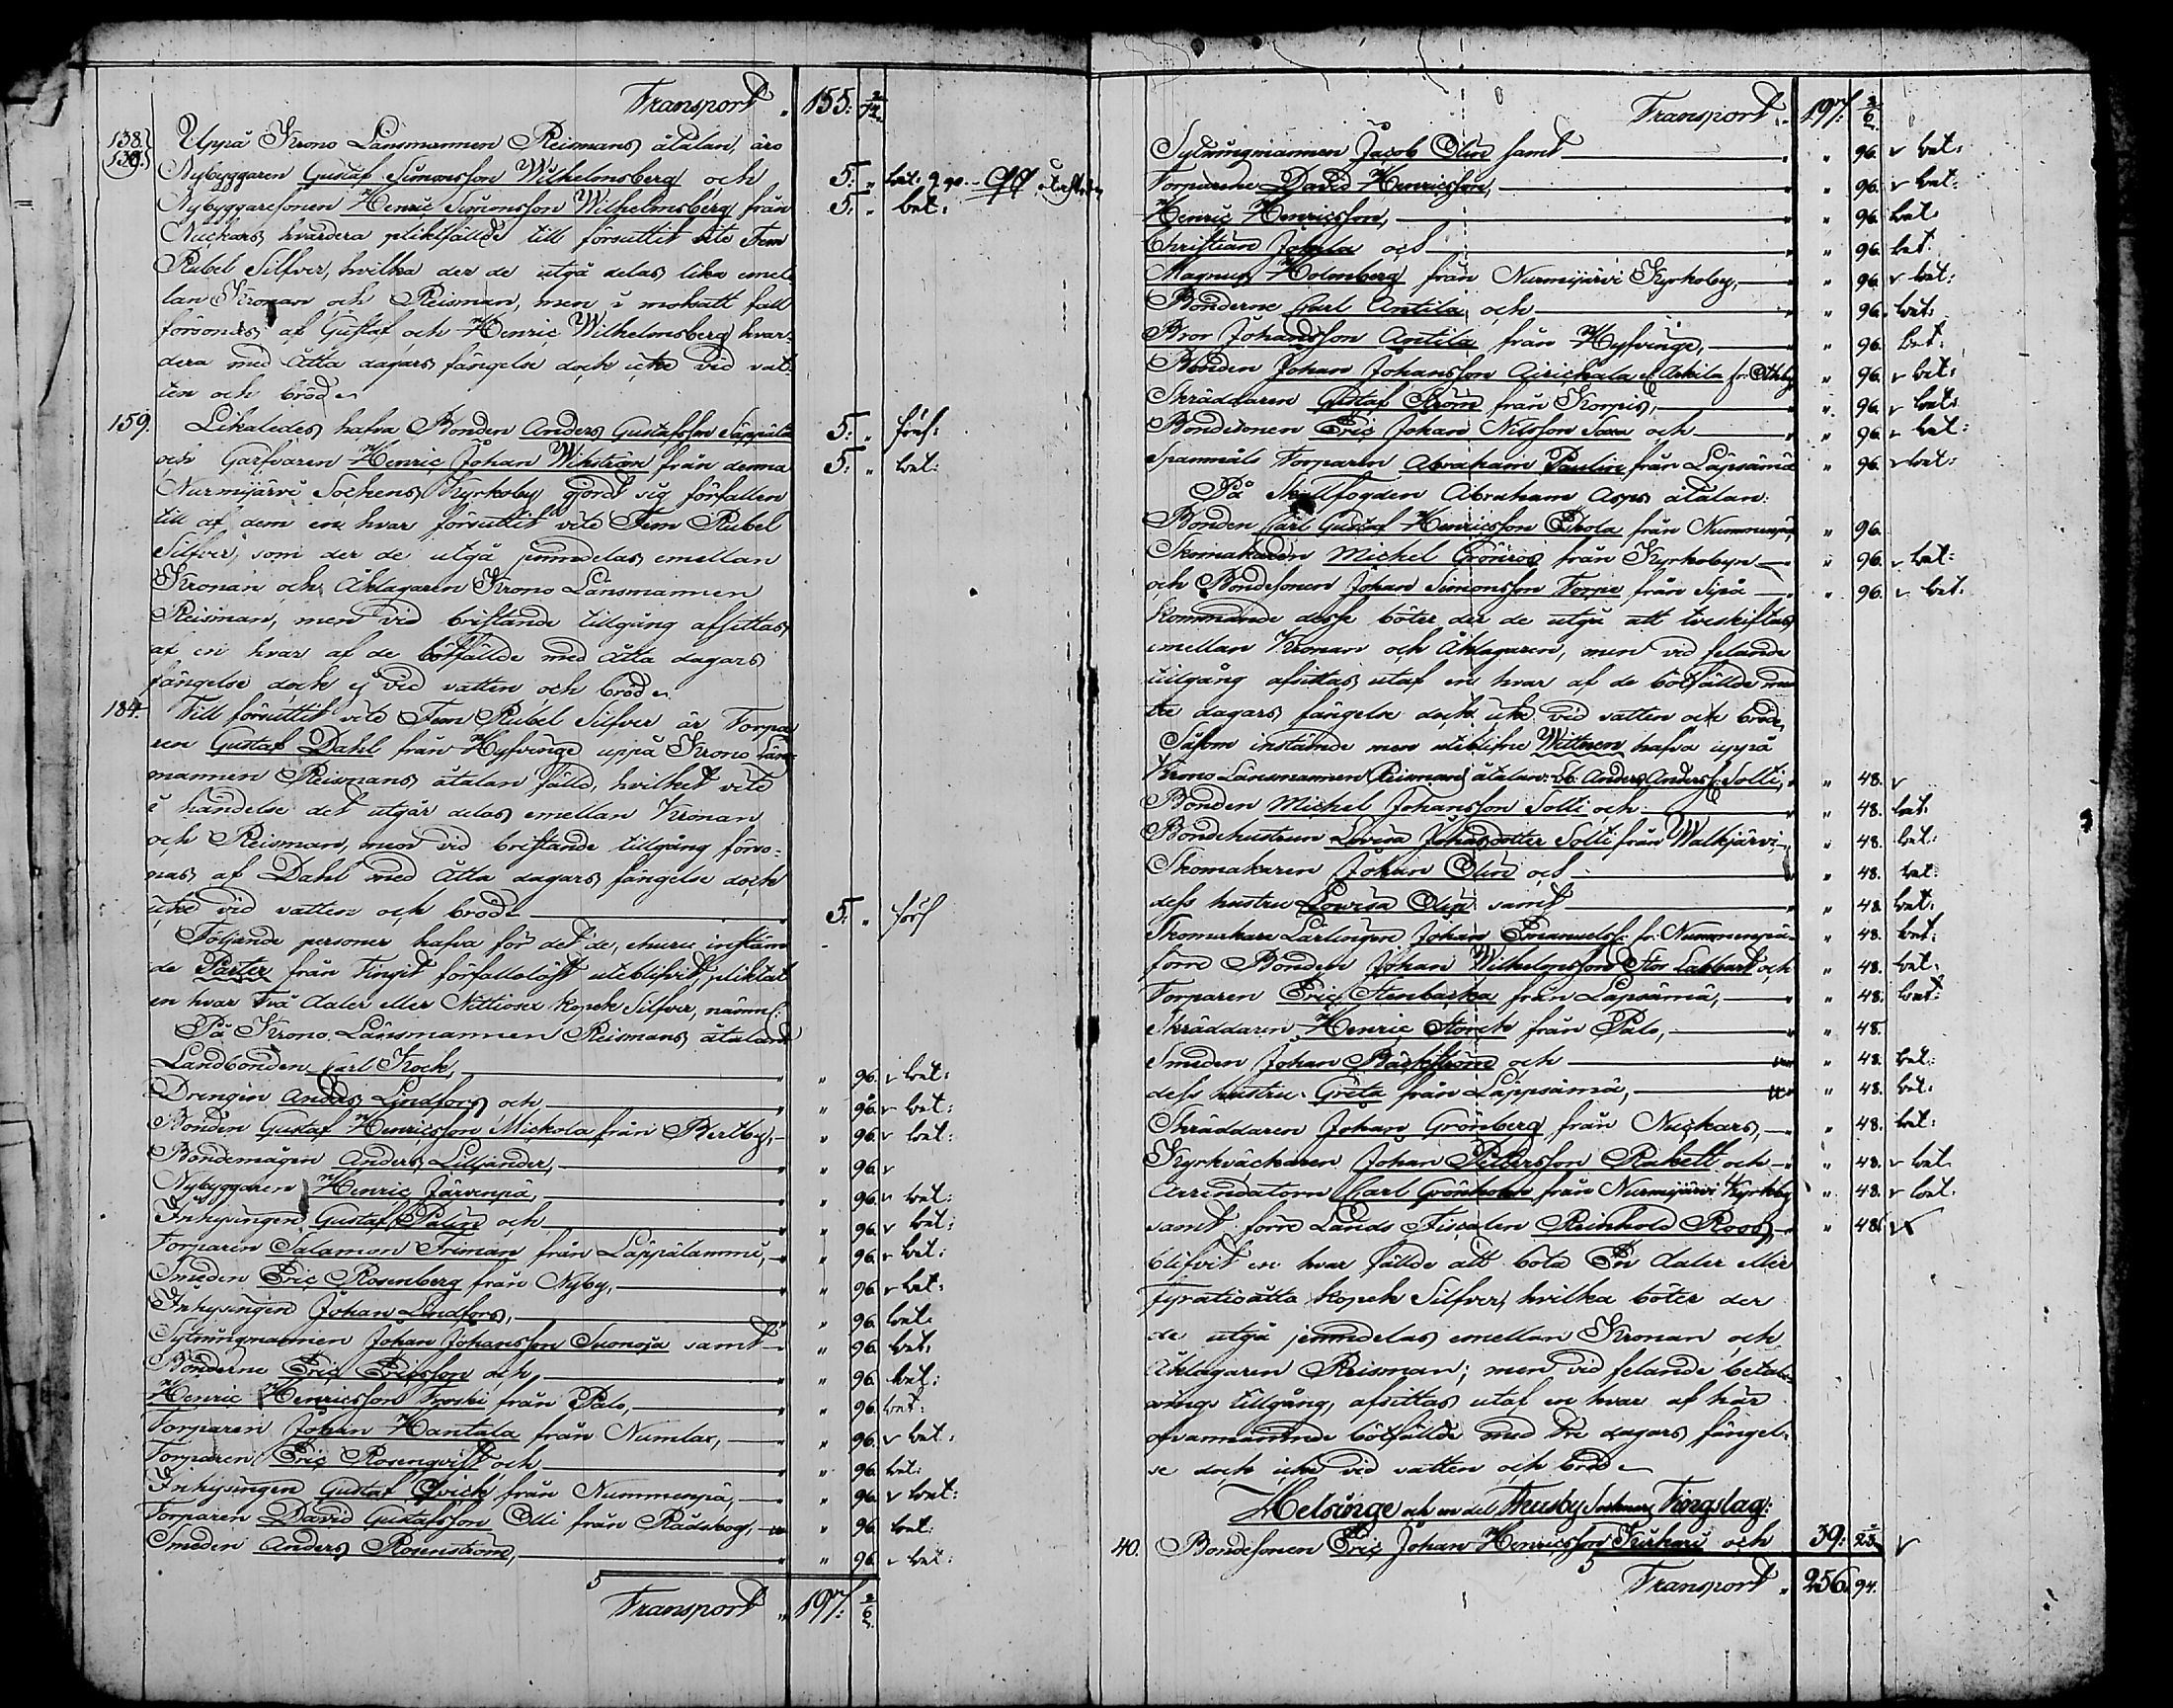 Transport " 155: 2/74.
138.} Uppå Krono Länsmannen Reismans åtalan, äro
139.} Nybyggaren Gustaf Simonsson Wilhelmsberg och 5: " bet:
Nybyggaresonen Henric Simonsson Wilhelmsberg från 5: " bet:
Nuckars hvardera pliktfällde till försuttit vite Fem
Rubel Silfver, hvilka der de utgå delas lika emel
lan Kronan och Reisman, men i motsatt fall
försonas af Gustaf och Henric Wilhelmsberg hvar-
dera med Åtta dagars fängelse dock icke vid vat-
ten och bröd.
159. Likaledes hafva Bonden Anders Gustafsson Säppälä 5: "
och Garfvaren Henric Johan Wikström från denna 5: " bet:
Nurmijärvi Sockens Kyrkoby gjordt sig förfallen
till af dem en hvar försuttit vite Fem Rubel
Silfver, som der de utgå jemndelas emellan
Kronan och Åklagaren Krono Länsmannen
Reisman, men vid bristande tillgång afsittas
af en hvar af de bötfällde med Åtta dagars
fängelse dock ej vid vatten och bröd.
184. Till försuttit vite Fem Rubel Silfver är Torpa
ren Gustaf Dahl från Hyfvinge uppå Krono Läns-
mannen Reismans åtalan fälld, hvilket vite
i händelse det utgår delas emellan Kronan
och Reisman, men vid bristande tillgång förso-
nas af Dahl med Åtta dagars fängelse dock
icke vid vatten och bröd 5: "
Följande personer hafva för det de, ehuru instäm
de Parter från Tinget förfallolöst uteblifvit, pliktat
en hvar Två daler eller Nettiosex kopek Silfver, nämnl:
På Krono Länsmannen Reismans åtalan
Landbonden Carl Kock, " 96. v bet:
Drengen Anders Lindfors och " 96. v bet:
Bonden Gustaf Henricsson Mickola från Bertby, " 96. v bet:
Bondemågen Anders Liljander, " 96. v
Nybyggaren Henric Järvenpä, " 96. v bet:
Inhysingen Gustaf Palin och " 96. v bet:
Torparen Salamon Friman från Läppälammi, " 96. v bet:
Smeden Eric Rosenberg från Nyby, " 96. v bet:
Inhysingen Johan Lindfors, " 96. bet:
Sytningmannen Johan Johansson Suonoja samt " 96. bet:
Bönderne Eric Ericsson och " 96. bet:
Henric Henricsson Troski från Palo, " 96. bet:
Torparen Johan Hantala från Numlax, " 96. v bet:
Torparen Eric Rosenqvist och " 96. bet:
Inhysingen Gustaf Qvick från Nummenpä, " 96. v bet:
Torparen David Gustafsson Olli från Rådskog, " 96. bet:
Smeden Anders Rosenström, " 96. v bet:
Transport " 197: 2/6.
Transport " 197: 2/6.
Sytningmannen Jacob Olin samt " 96. v bet:
Torparene David Henricsson, " 96. v bet:
Henric Henricsson, " 96. bet:
Christian Jokela och " 96. bet:
Magnus Holmberg från Nurmijärvi Kyrkoby, " 96. v bet:
Bönderne Carl Antila och " 96. bet:
Bror Johansson Antila från Hyfvinge, " 96. bet:
Bonden Johan Johansson " 96. v bet:
Skräddaren Gustaf Ström från Korpis, " 96. v bet:
Bondesonen Eric Johan Nilsson Saxa och " 96. v bet:
Spanmåls Torparen Abraham Paulin från Läpsämä " 96. v bet:
På Skallfogden Abraham Asps åtalan:
Bonden Carl Gustaf Henricsson Erola från Nummenpä, " 96.
Skomakaren Michel Grönroos från Kyrkobyn " 96. v bet:
och Bondesonen Johan Simonsson Torpe från Sipä " 96. v bet:
kommande desse böter der de utgå att tveskiftas
emellan Kronan och Åklagaren, men vid felande
tillgång afsittas utaf en hvar af de bötfällde med
tre dagars fängelse dock icke vid vatten och bröd.
Såsom instämde men uteblifne Wittnen hafva uppå
Krono Länsmannen Reismans åtalan: Anders Anderss: Solti, " 48. v
Bonden Michel Johansson Solti och " 48. bet:
Bondehustrun Lovisa Johansdotter Solti från Walkjärvi, " 48. bet:
Skomakaren Johan Olin och " 48. bet:
dess hustru Lovisa Olin samt " 48. bet:
Skomakare Lärlingen Johan Emanuelss: fr: Nummenpä " 48. bet:
förre Bonden Johan Wilhelmsson Stor Labbart och " 48. bet:
Torparen Eric Stenbacka från Läpsämä, " 48. bet:
Skräddaren Henric Storck från Palo, " 48.
Smeden Johan Bäckström och " 48. bet:
dess hustru Greta från Läppsämä, " 48. bet:
Skräddaren Johan Grönberg från Nuckars, " 48. bet:
Kyrkväckaren Johan Pettersson Rakett och " 48. v bet:
Arrendatorn Carl Grönholm från Nurmijärvi Kyrkby " 48. v bet:
samt förre Lands Fiscalen Reinhold Roos, " 48. v
blifvit en hvar fällde att böta En daler eller
fyratioåtta kopek Silfver, hvilka böter der
de utgå jemndelas emellan Kronan och
Åklagaren Reisman; men vid felande betal-
nings tillgång, afsittas utaf en hvar af här
ofvannämnde bötfällde med Tre dagars fängel-
se dock icke vid vatten och bröd.
Helsinge och en del Thusby Socknars Tingslag:
40. Bondesonen Eric Johan Henricsson Kirkari och 39: v
Transport " 256. 94.